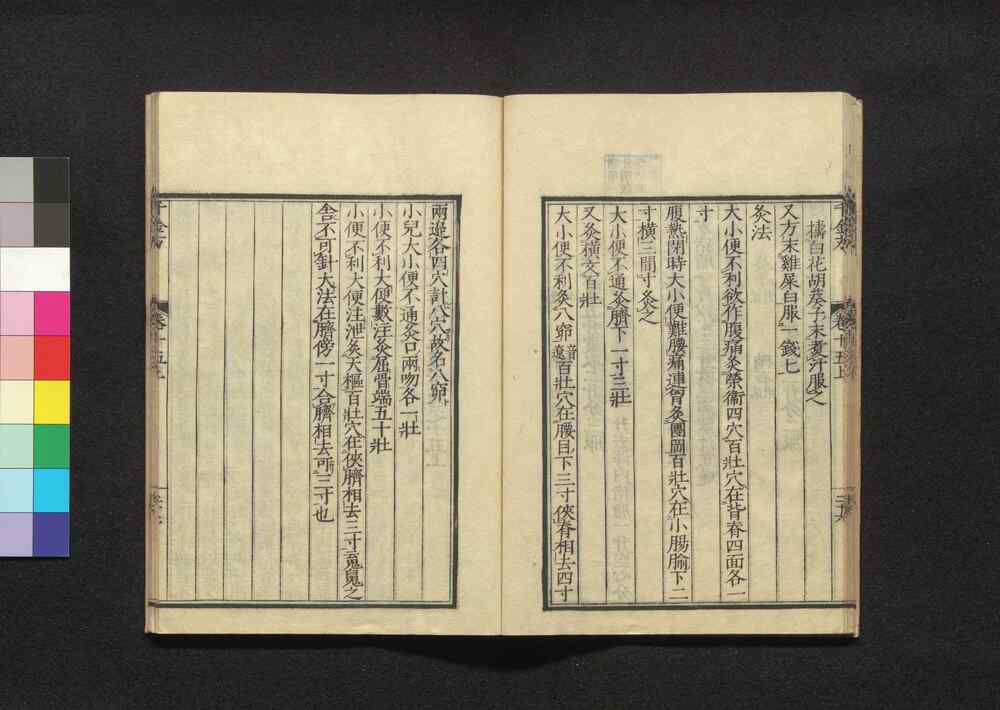 擣白花胡葵子末煑汁服之
又方末雞屎白服一錢匕
灸法
大小便不利欲作腹痛灸榮衛四穴百壯穴在背脊四面各一
寸
腹熱閉時大小便難腰痛連胷灸團岡百壯穴在小腸腧下二
寸橫三間寸灸之
大小便不通灸臍下一寸三壯
又灸橫文百壯
大小便不利灸八窌百壯穴在腰目下三寸俠脊相去四寸
兩邊各四穴計八穴故名八窌
小兒大小便不通灸口兩吻各一壯
小便不利大便數注灸屈骨端五十壯
小便不利大便注泄灸天樞百壯穴在俠臍相去三寸䰟魄之
舍不可針大法在臍傍一寸合臍相去可三寸也
卷十五上